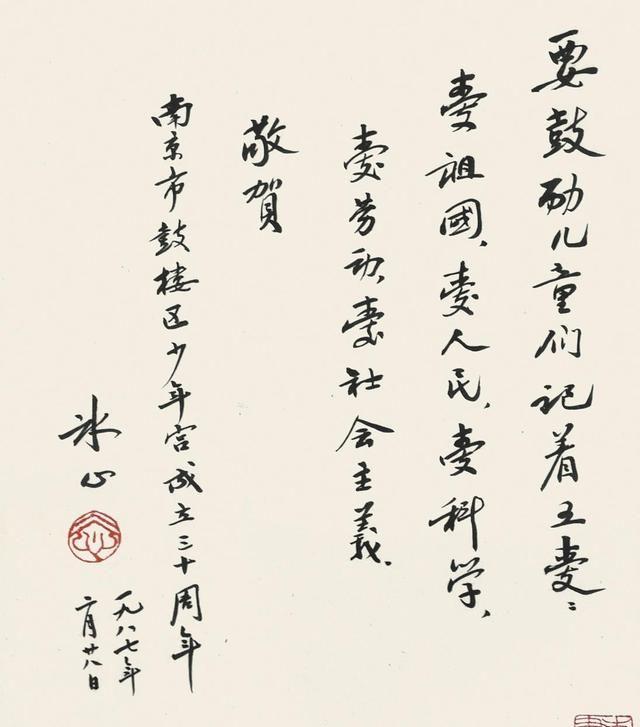 要鼓励儿童们记着五爱:
爱祖國、爱人民、爱科学、
爱劳动、爱社会主義.
敬賀
南京市鼓楼区少年宫成立三十周年
冰心
一九八七年
二月廿八日